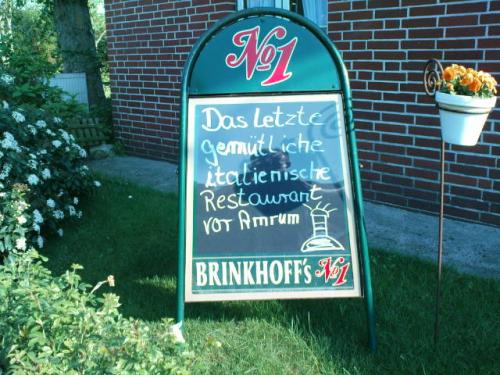 No1
Das Letzte
gemütliche
italienische
Restaurant
vor Amrum
BRINKHOFF's No1